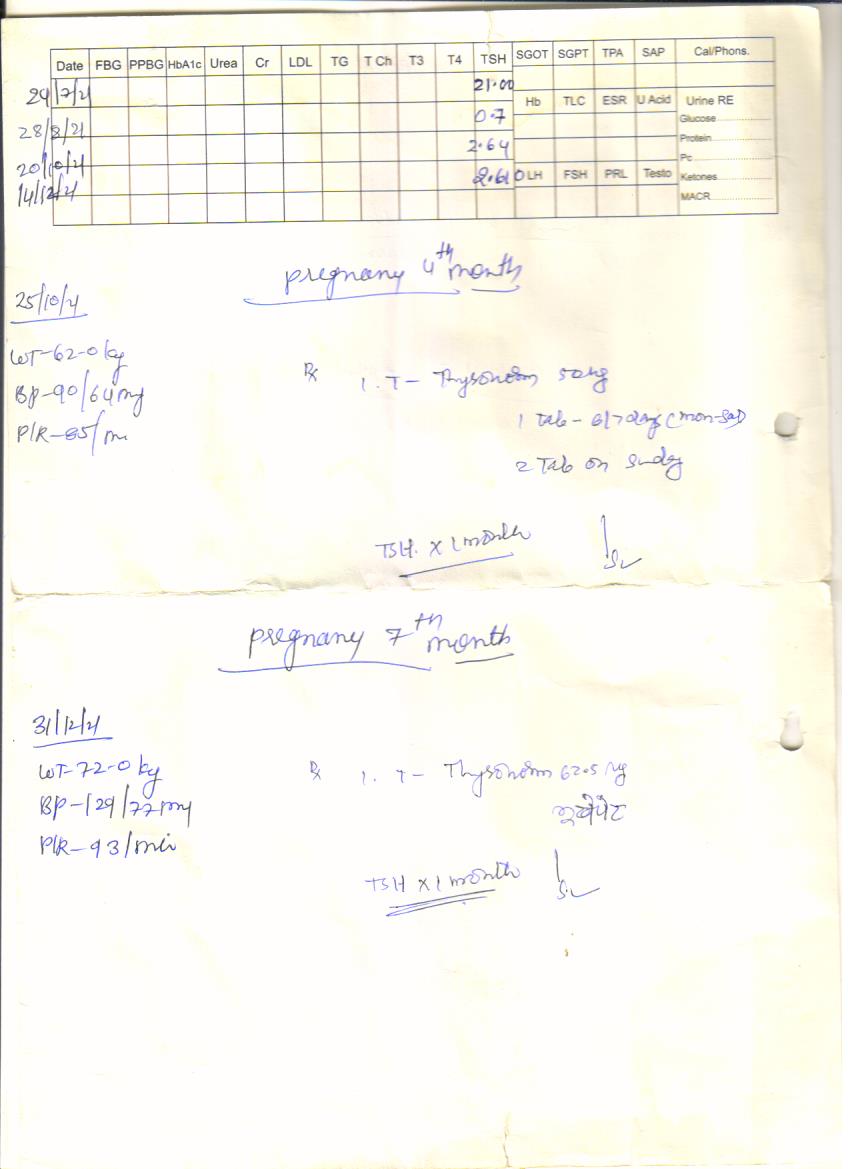 Date FBG PPBG HbA1c Urea Cr LDL TG T Ch T3 T4 TSH SGOT SGPT TPA SAP Cal/Phons.
24/7/21 21.00
Hb TLC ESR U Acid Urine RE
28/8/21 0.7
Glucose
Protein
20/10/21 2.64
Pc
14/12/21 2.610
LH FSH PRL Testo Ketones
MACR
pregnany 4th month
25/10/21
WT-62.0 kg
BP-90/64 mg
P/R-85/m
Rx 1. T- Thysonorm 50mg
1 Tab - 6/7 days (mon-sat)
2 Tab on sunday
TSH. x 1 month
pregnany 7th month
31/12/21
WT-72.0 kg
BP-129/77 mg
P/R-93/min
Rx 1. T- Thysonorm 62.5 mg
TSH x 1 month